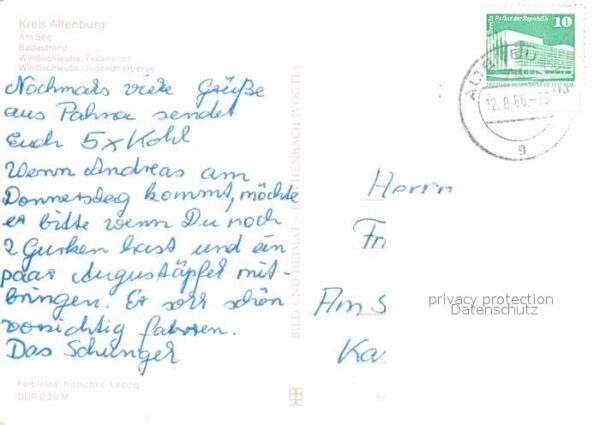 Kreis Altenburg
Am See
Badestrand
Windischleuba, Teilansicht
Windischleuba, Jugendherberge
Nochmals viele Grüße
aus Pahna sendet
Euch 5xKohl
Wenn Andreas am
Donnerstag kommt, möchte
er bitte wenn Du noch
2 Gurken hast und ein
paar Augustäpfel mit-
bringen. Er soll schön
vorsichtig fahren.
Das Schunger
Farbfotos: Nitzschke, Leipzig
DDR 0,20 M
BILD UND HEIMAT REICHENBACH (VOGTL)
Berlin Palast der Republik
10
12.8.86.-15
g
Herrn
Fr
Am S
Ka
privacy protection
Datenschutz